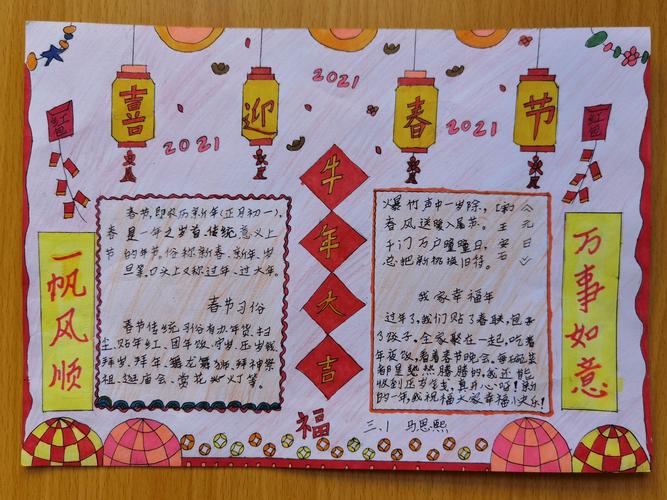 2021
喜迎春节
2021
2021
红包
红包
牛年大吉
一帆风顺
万事如意
春节,即农历新年(正月初一),
春是一年之岁首、传统意义上
的年节。俗称新春、新年、岁
旦等。口头上又称过年、过大年。
春节习俗
春节传统习俗有办年货、扫
尘、贴年红、团年饭、守岁、压岁钱
拜岁、拜年、舞龙舞狮、拜神祭
祖、逛庙会、赏花灯等。
爆竹声中一岁除,
春风送暖入屠苏。
千门万户曈曈日,
总把新桃换旧符。
[宋]王安石
《元日》
我家幸福年
过年了,我们贴了春联,包
了饺子。全家聚在一起,吃着
年夜饭,看着春节晚会。每碗菜
都是热腾腾的,我还能
收到压岁钱,真开心呀!新
的一年,我祝福大家幸福快乐!
福
三.1 马思熙